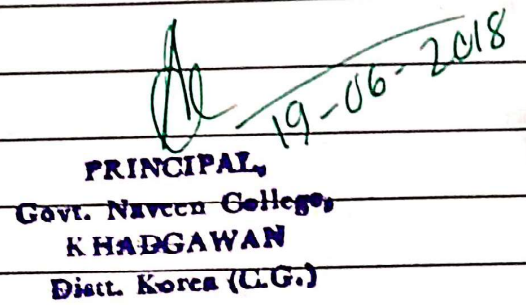 19-06-2018
PRINCIPAL,
Govt. Naveen College,
KHADGAWAN
Distt. Korea (C.G.)